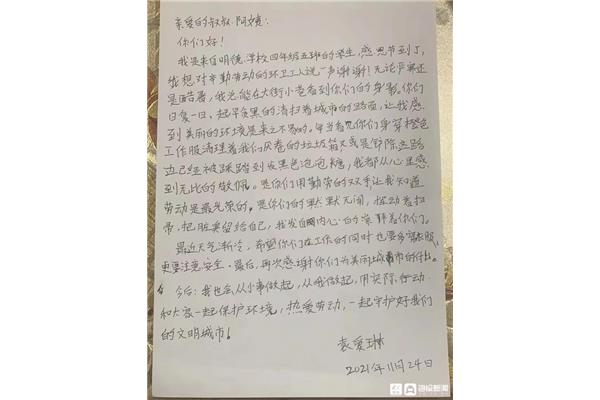 亲爱的叔叔、阿姨:
你们好!
我是来自明德学校四年级五班的学生,感恩节到了,
我想对辛勤劳动的环卫工人说一声谢谢!无论严寒还
是酷暑,我总能在大街小巷看到你们的身影。你们
日复一日,起早贪黑的清扫着城市的路面,让我感
到美丽的环境是来之不易的。每当看见你们身穿橙色
工作服清理着我们厌卷的垃圾箱又或是铲除走路
边已经被踩踏到发黑色泡泡糖,我都从心里感
到无比的敬佩。是你们用勤劳的双手让我知道
劳动是最光荣的。是你们的默默无闻,挥动着扫
帚,把脏臭留给自己,我发自内心的崇拜着你们。
最近天气渐冷,希望你们在工作的同时也要多穿衣服
更要注意安全。最后,再次感谢你们为美丽城市的付出。
今后,我也会从小事做起,从我做起,用实际行动
和大家一起保护环境,热爱劳动,一起守护好我们
的文明城市!
袁爱琳
2021年11月24日
海报新闻